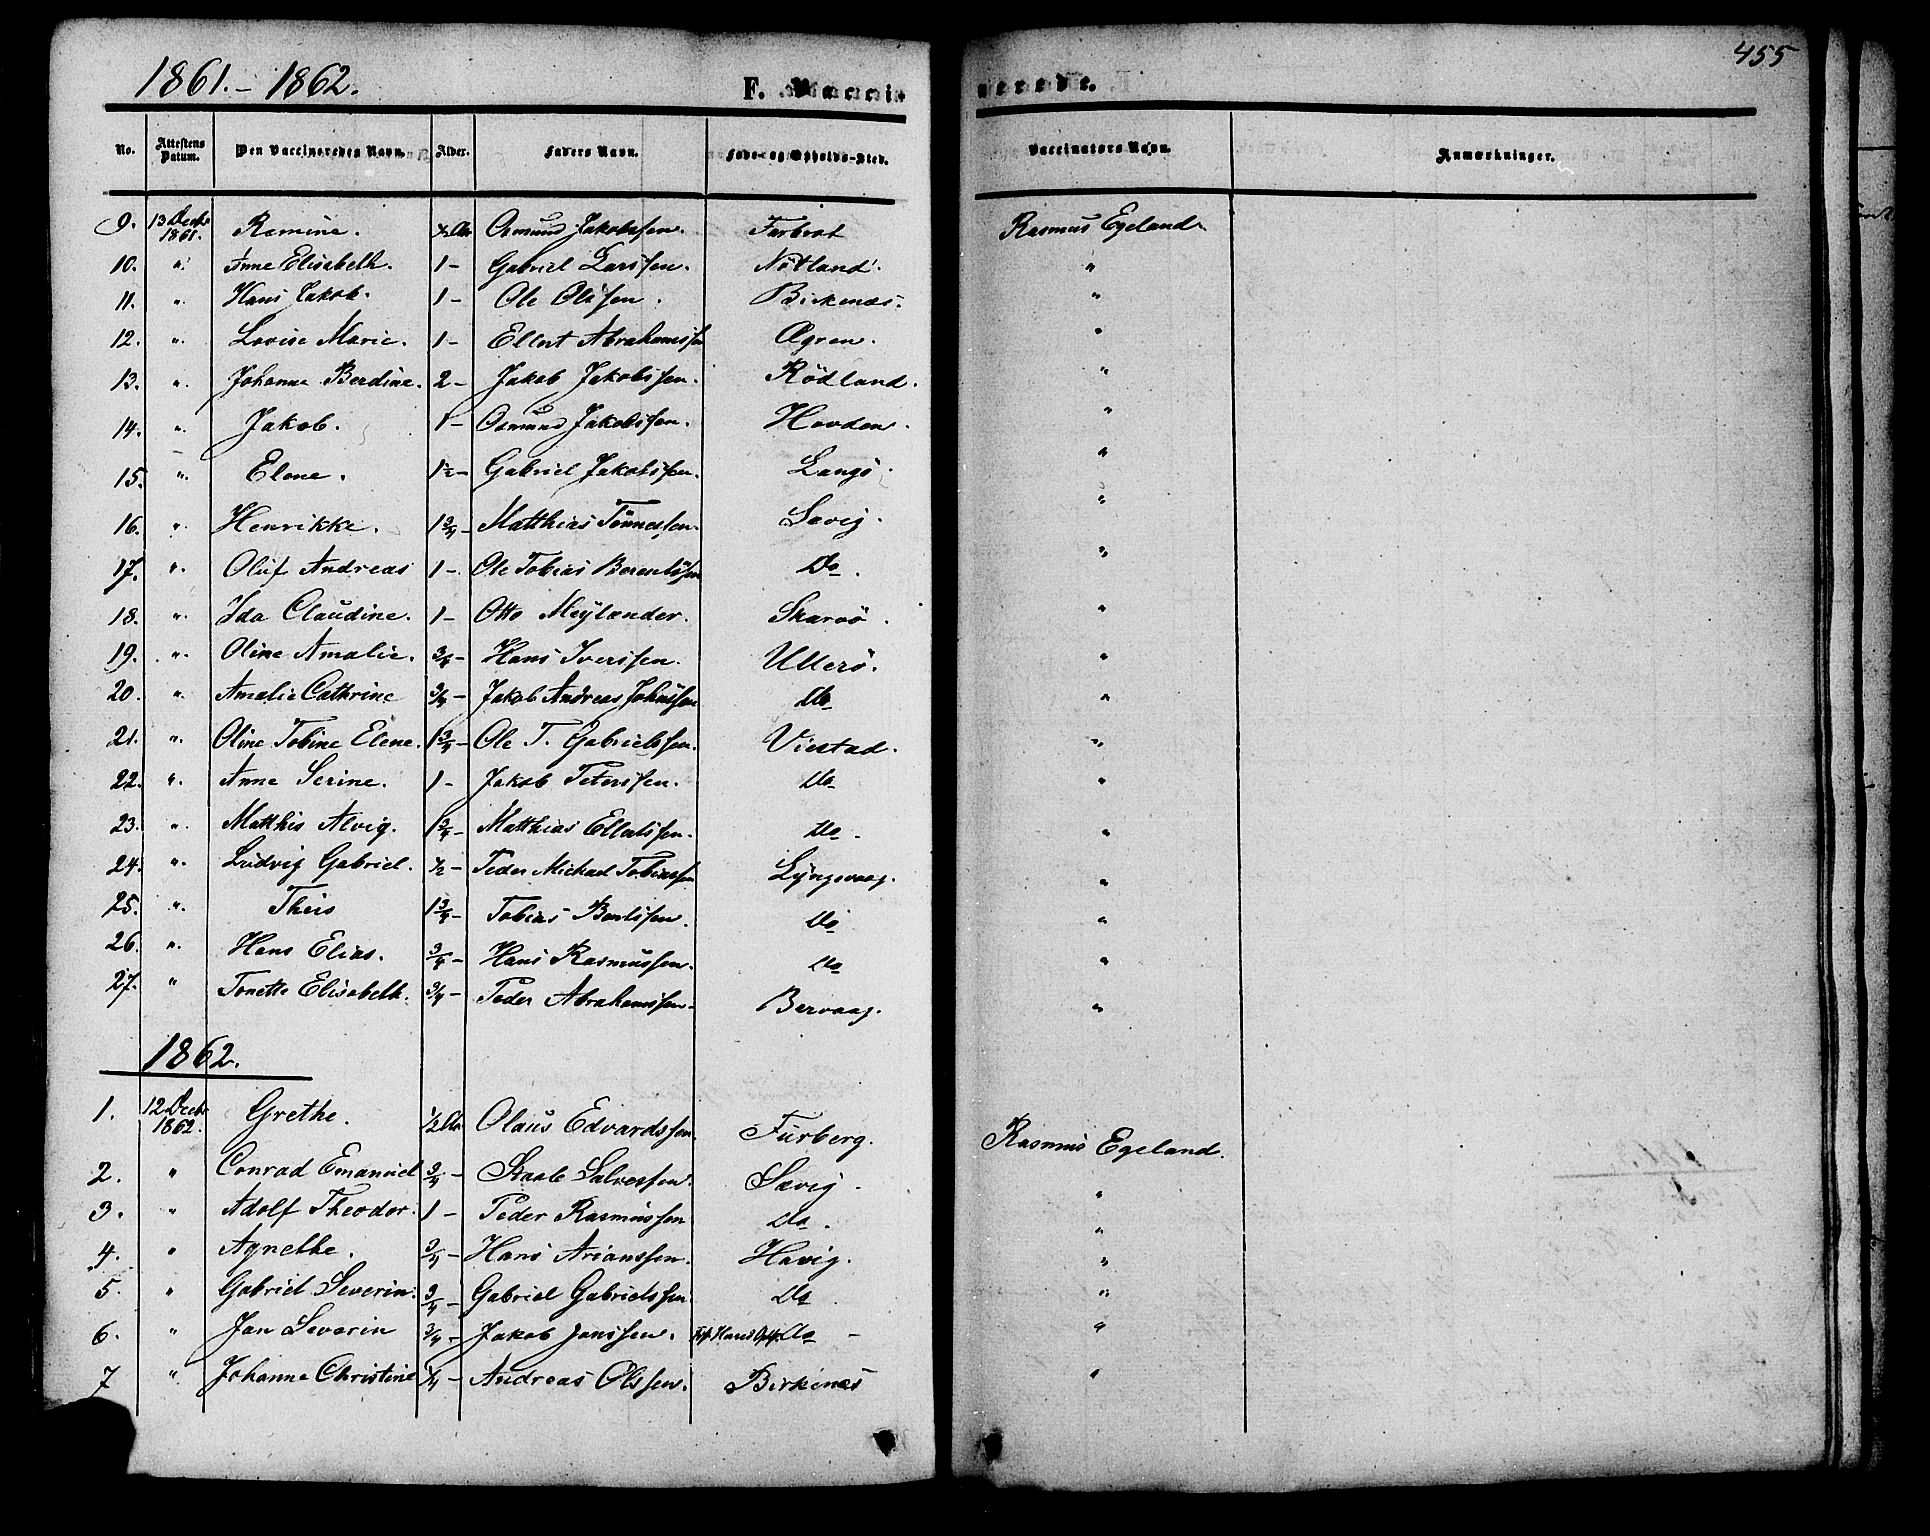 1861.-1862. F. Vaccinerede. 455
No. Attestens Datum. Den Vaccineredes Navn. Alder. Faders Navn. Føde- og Opholds-Sted. Vaccinators Navn. Anmærkninger.
9. 13 Decbr 1861. Ramine. ½ Aar Osmund Jakobssen. Farbrot Rasmus Egeland.
10. " Anne Elisabeth. 1 - Gabriel Larssen. Nøtland. "
11. " Hans Jakob. 1 - Ole Olssen. Birkenæs. "
12. " Lovise Marie. 1 - Ellert Abrahamssen Øgren. "
13. " Johanne Berdine. 2 - Jakob Jakobssen. Rödland. "
14. " Jakob. 1 - Osmund Jakobssen. Hovden. "
15. " Elene. 1½ - Gabriel Jakobssen. Langö. "
16. " Henrikke. 1¾ - Matthias Tönnessen. Sævig. "
17. " Oluf Andreas 1 - Ole Tobias Berentssen Do. "
18. " Ida Claudine. 1 - Otto Meÿlænder. Skarvö. "
19. " Oline Amalie. ¾ - Hans Iverssen. Ullerö. "
20. " Amalie Cathrine ¾ - Jakob Andreas Johnssen Do "
21. " Oline Tobine Elene. 1¾ - Ole T. Gabrielssen. Viestad. "
22. " Anne Serine. 1 - Jakob Peterssen. Do "
23. " Matthis Alvig. 1¾ - Matthias Ellertssen. Do. "
24. " Ludvig Gabriel. ½ - Peder Michael Tobiassen Lÿngsvaag. "
25. " Theis 1¾ - Tobias Bentssen. Do "
26. " Hans Elias. ¾ - Hans Rasmussen. Do "
27. " Tonette Elisabeth. ¾ - Peder Abrahamssen. Bervaag. "
1862.
1. 12 Decbr 1862. Grethe. ½ Aar Olaus Edvardssen. Furberg. Rasmus Egeland.
2. " Conrad Emanuel ¾ - Salvessen. Sævig. "
3. " Adolf Theodor. 1 - Peder Rasmussen Do. "
4. " Agnethe. ¾ - Hans Arianssen. Havig. "
5. " Gabriel Severin. ¾ - Gabriel Gabrielssen. Do "
6. " Jan Severin ¾ - Jakob Janssen. Do - "
7 " Johanne Christine ¼ - Andreas Olssen. Birkenæs "